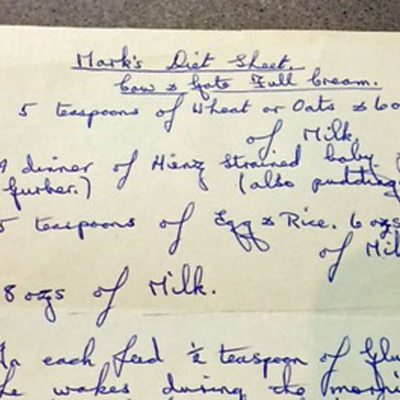 Mark's Diet Sheet.
Cow & Gate Full Cream.
5 teaspoons of Wheat or Oats & 6o
of Milk.
A dinner of Hienz Strained baby
furber.) (also pudding
5 teaspoons of Egg & Rice. 6 ozs
of Mil
8 ozs of Milk.
In each feed ½ teaspoon of Glu
he wakes during the morni